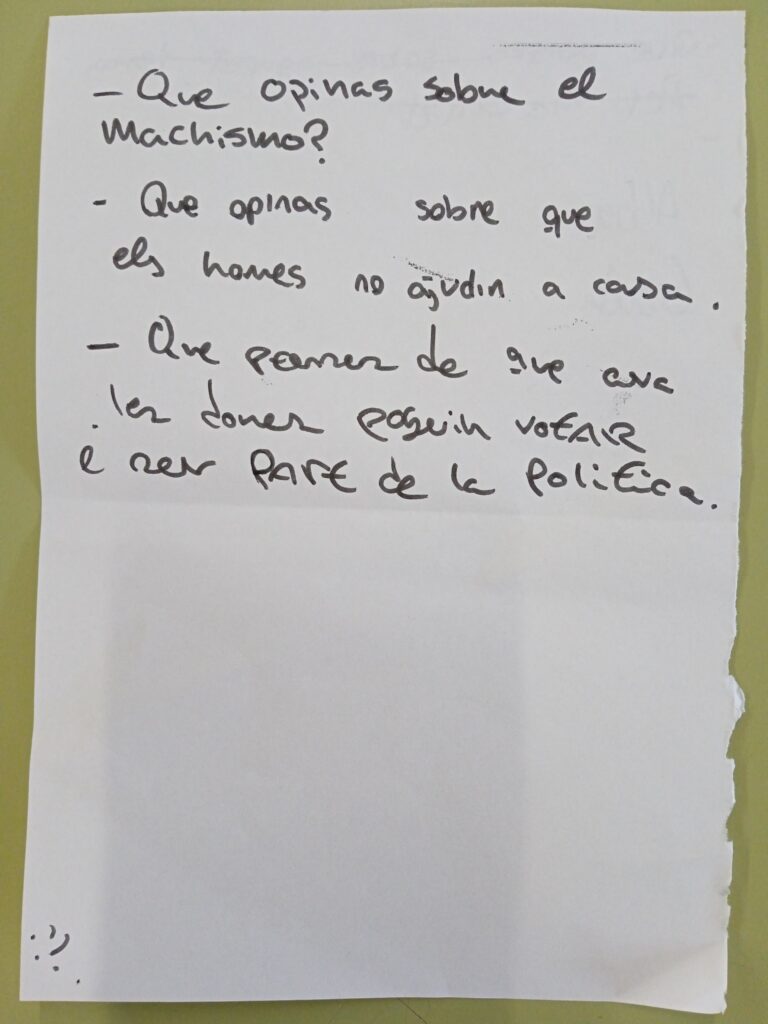 - Que opinas sobre el
machismo?
- Que opinas sobre que
els homes no ajudin a casa.
- Que penses de que ara
les dones poguin votar
e ser part de la politica.